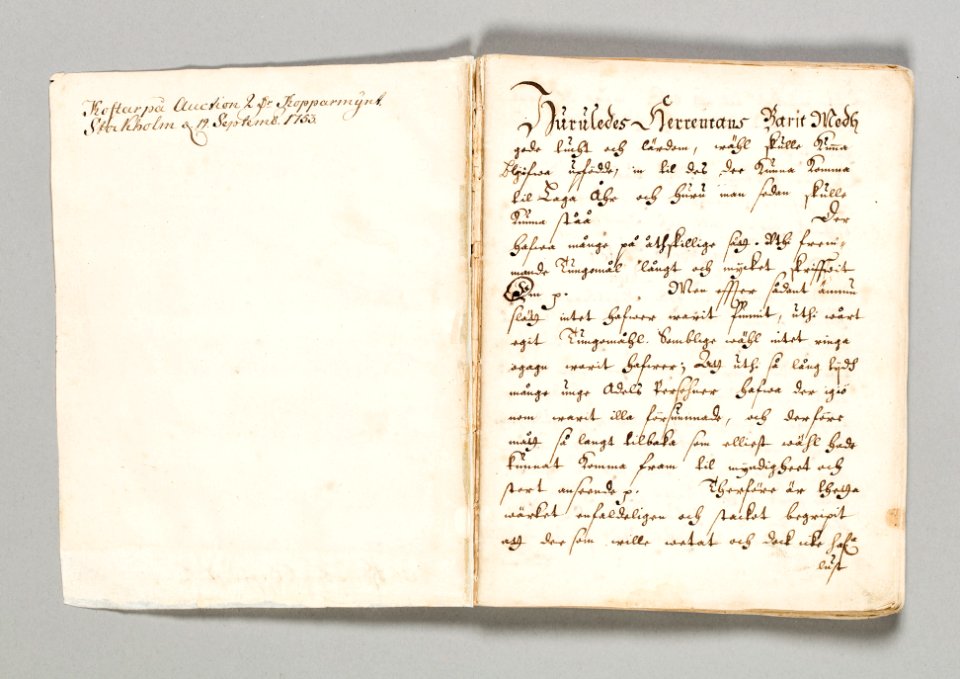 Kostar på Auction 2 dr Kopparmÿnt.
Stockholm d 19 Septemb. 1753
Huruledes Herremans Barn Medh
gode tucht och lärdom, wähl skulle kunna
upfödde, in til des dee kunna komma
til Laga Åhr och huru man sedan skulle
kunna ståå Der
hafwa månge på åthskillige sätt. Uthi frem-
mande Tungomål långt och mycket skriffwit
om p. Men effter sådant ännu
slätt intet hafwer warit funnit, uthi wårt
egit Tungomåhl. Somblige wähl intet ringa
ogagn warit hafwer; Att uthi så lång tydh
månge unge Adels Persohner hafwa der igiö
nom warit illa försummade, och derföre
mått så langt tilbaka som elliest wähl hade
kunnat komma fram til myndigheet och
stort anseende p. Therföre är thetta
wärket enfaldeligen och stacket begripit
att dee som wille wetat och dock icke hafa
lust